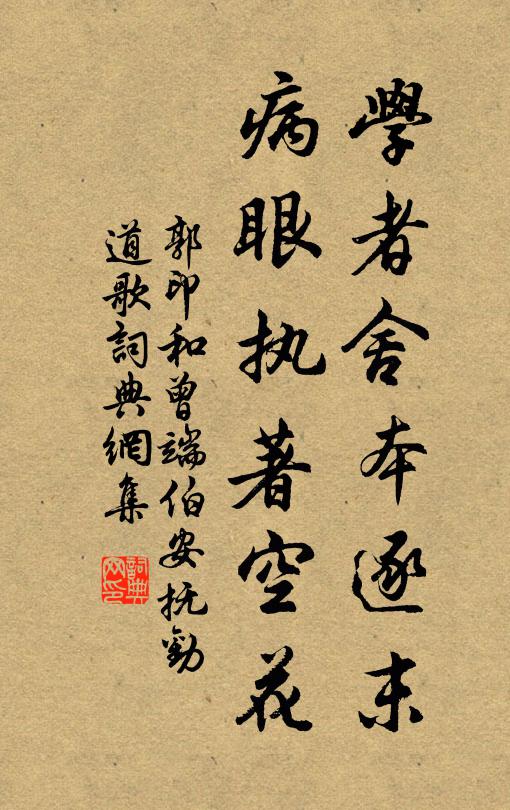 學者舍本逐末
病眼执著空花
郭印和曾端伯安抚勸
道歌詞典網集
詞典
网印